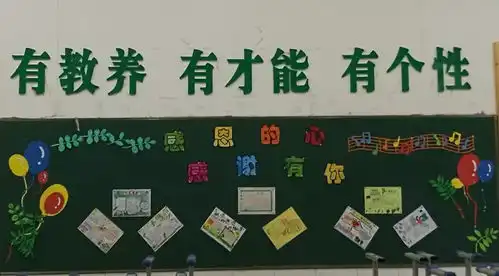 有教养 有才能 有个性
感恩的心
感谢有你